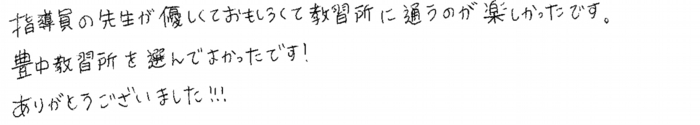 指導員の先生が優しくておもしろくて教習所に通うのが楽しかったです。
豊中教習所を選んでよかったです!
ありがとうございました!!!